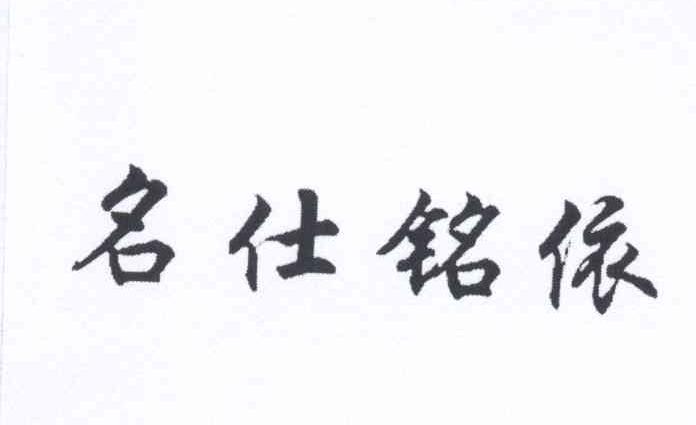 名仕铭依